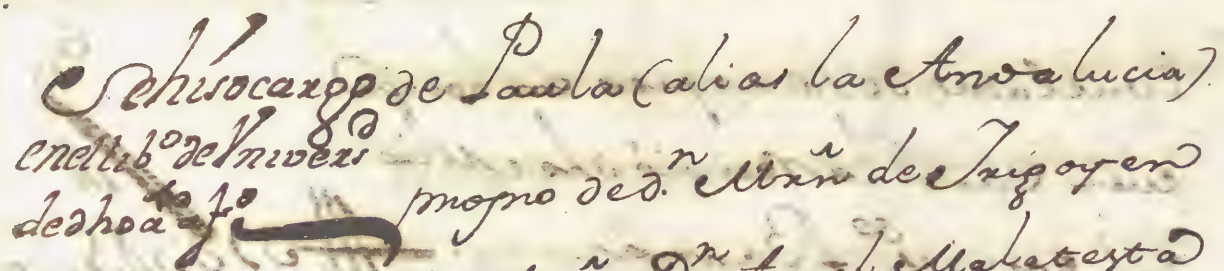 Sehiso cargo de Paula (alias la Andalucia)
en el lib.º de Univers.d
de dho a.to fº
propio de d.n Mrñ de Irigoyen
Malatesta